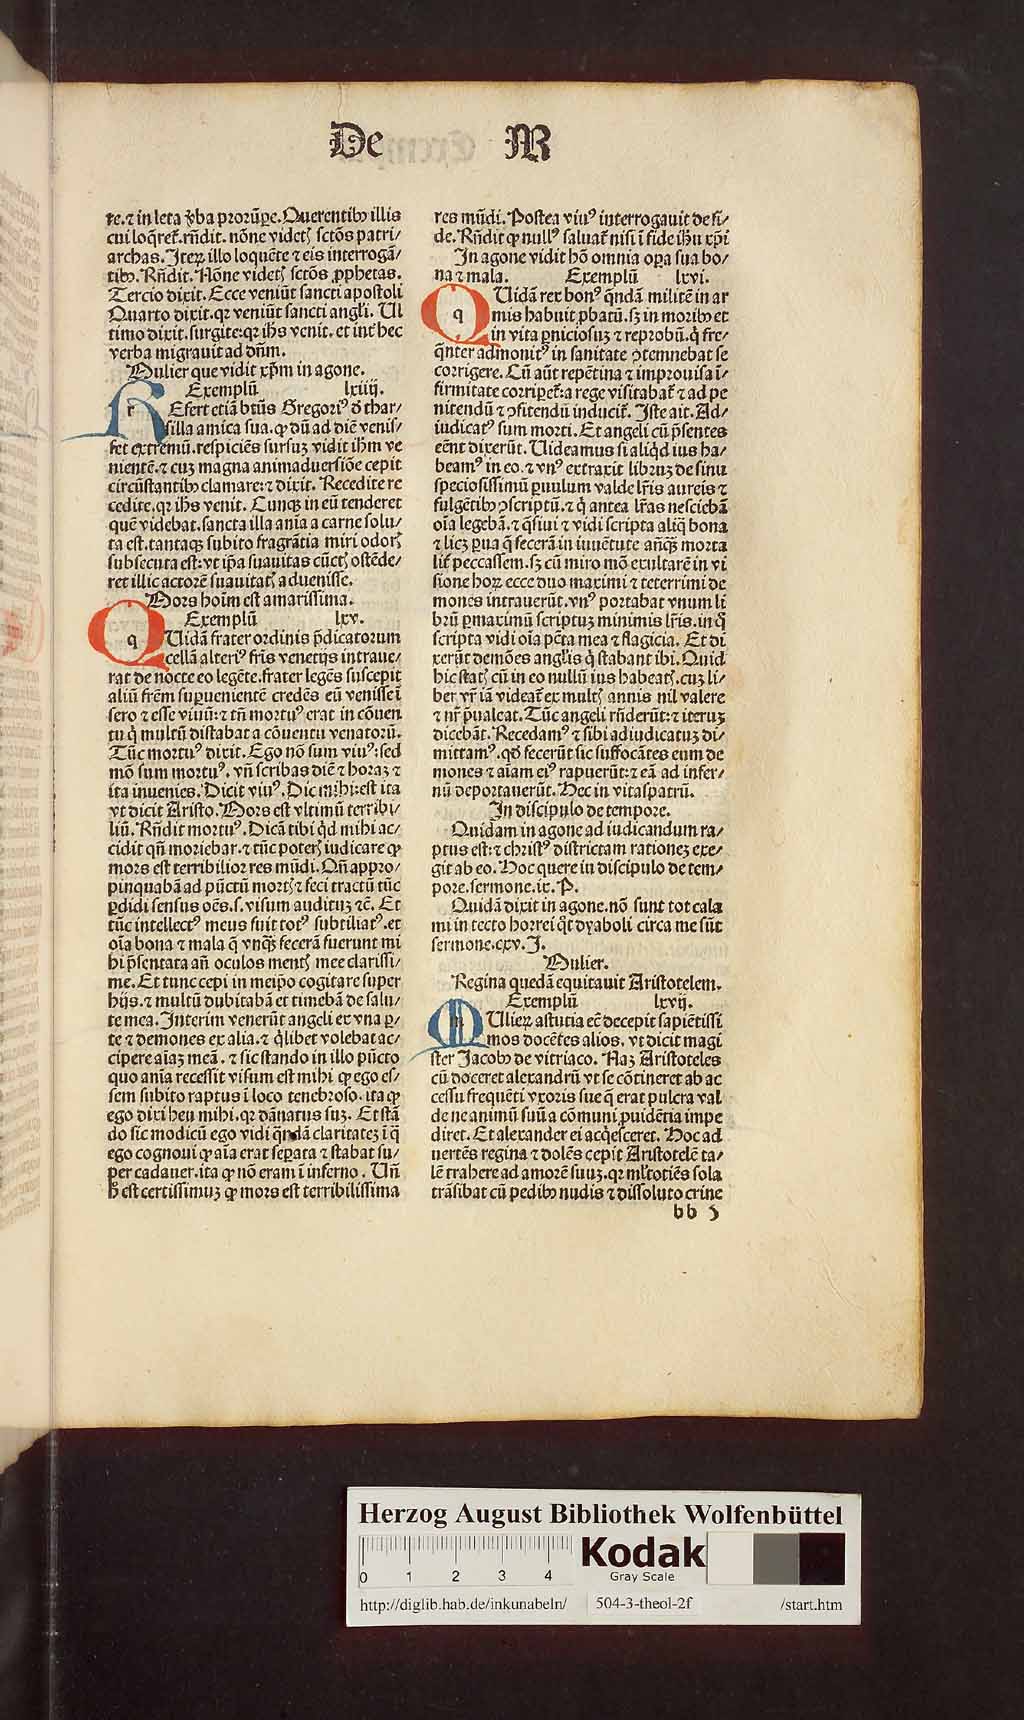 De M
re.⁊ in leta v̾ba prorūpe.Querentibꝰ illis
cui loq̄ret̉.rñdit.nōne videtꝭ sctōs patri/
archas.Iteꝝ illo loquēte ⁊ eis interrogā/
tibꝰ.Rñdit.Nōne videtꝭ sctōs ꝓphetas.
Tercio dixit.Ecce veniūt sancti apostoli
Quarto dixit.qꝛ veniūt sancti angl̓i. Ul
timo dixit.surgite:qꝛ ihs venit.et int̓ hec
verba migrauit ad dñm.
Mulier que vidit xp̄m in agone.
Exemplū lxiiij.
r Efert etiā btūs Gregoriꝰ ō thar/
silla amica sua.ꝙ dū ad diē venis/
set extremū.respiciēs sursuꝫ vidit ihm ve
nientē.⁊ cuꝫ magna animaduersiōe cepit
circūstantibꝰ clamare:⁊ dixit. Recedite re
cedite.qꝛ ihs venit. Cunqꝫ in eū tenderet
quē videbat.sancta illa anīa a carne solu/
ta est.tantaqꝫ subito fragrātia miri odorꝭ
subsecuta est:vt ip̄a suauitas cūctꝭ ostēde/
ret illic actorē suauitatꝭ aduenisse.
Mors hoīm est amarissima.
Exemplū lxv.
q Uidā frater ordinis p̄dicatorum
cellā alteriꝰ fr̄is venetijs intraue/
rat de nocte eo legēte.frater legēs suscepit
aliū frēm suꝑuenientē credēs eū venisse ī
sero ⁊ esse viuū:⁊ tñ mortuꝰ erat in cōuen
tu q̓ multū distabat a cōuentu venatorū.
Tūc mortuꝰ dixit. Ego nō sum viuꝰ:sed
mō sum mortuꝰ. vñ scribas diē ⁊ horaꝫ ⁊
ita inuenies. Dicit viuꝰ. Dic mihi:est ita
vt dicit Aristo. Mors est vltimū terribi/
liū. Rñdit mortuꝰ. Dicā tibi qd̓ mihi ac/
cidit qñ moriebar.⁊ tūc poterꝭ iudicare ꝙ
mors est terribilior res mūdi. Qñ appro/
pinquabā ad pūctū mortꝭ ⁊ feci tractū tūc
ꝑdidi sensus oēs.s.visum audituꝫ ⁊c. Et
tūc intellectꝰ meus fuit totꝰ subtiliatꝰ.et
oīa bona ⁊ mala q̄ vnqꝫ fecerā fuerunt mi
hi p̄sentata añ oculos mentꝭ mee clarissi/
me. Et tunc cepi in meipō cogitare super
hijs.⁊ multū dubitabā et timebā de salu/
te mea. Interim venerūt angeli ex vna ꝑ/
te ⁊ demones ex alia.⁊ q̓libet volebat ac/
cipere aīaꝫ meā.⁊ sic stando in illo pūcto
quo anīa recessit visum est mihi ꝙ ego es/
sem subito raptus ī loco tenebroso. ita ꝙ
ego dixi heu mihi.qꝛ dānatus suꝫ. Et stā
do sic modicū ego vidi q̄ndā claritateꝫ ī q̓
ego cognoui ꝙ aīa erat seꝑata ⁊ stabat su/
per cadauer.ita ꝙ nō eram ī inferno. Uñ
h̓ est certissimuꝫ ꝙ mors est terribilissima
res mūdi. Postea viuꝰ interrogauit de fi/
de. Rñdit ꝙ nullꝰ saluat̉ nisi ī fide ihū xp̄i
In agone vidit hō omnia oꝑa sua bo/
na ⁊ mala. Exemplū lxvi.
q Uidā rex bonꝰ q̄ndā militē in ar
mis habuit ꝓbatū.sꝫ in moribꝰ et
in vita ꝑniciosuꝫ ⁊ reprobū.q̓ fre/
q̄nter admonitꝰ in sanitate ꝯtemnebat se
corrigere. Cū aūt repētina ⁊ improuisa ī/
firmitate corripet̉:a rege visitabat̉ ⁊ ad pe
nitendū ⁊ ꝯfitendū inducit̉. Iste ait. Ad/
iudicatꝰ sum morti. Et angeli cū p̄sentes
eēnt dixerūt. Uideamus si aliqd̓ ius ha/
beamꝰ in eo.⁊ vnꝰ extraxit libruꝫ de sinu
speciosissimū ꝑuulum valde lr̄is aureis ⁊
fulgētibꝰ ꝯscriptū.⁊ q̓ antea lr̄as nesciebā
oīa legebā.⁊ q̄siui ⁊ vidi scripta aliq̄ bona
⁊ licꝫ ꝑua q̄ fecerā in iuuētute añqꝫ morta
lit̉ peccassem.sꝫ cū miro mō exultarē in vi
sione horꝫ ecce duo maximi ⁊ teterrimi de
mones intrauerūt.vnꝰ portabat vnum li
brū ꝑmaximū scriptuꝫ minimis lr̄is.in q̓
scripta vidi oīa pctā mea ⁊ flagicia. Et di
xerūt demōes angl̓is q̓ stabant ibi. Quid
hic statꝭ cū in eo nullū ius habeatꝭ.cuꝫ li/
ber vr̄ iā videat̉ ex multꝭ annis nil valere
⁊ nr̄ p̄ualeat. Tūc angeli rñderūt:⁊ iteruꝫ
dicebāt. Recedamꝰ ⁊ sibi adiudicatuꝫ di/
mittamꝰ.qd̓ fecerūt sic suffocātes eum de
mones ⁊ aīam eiꝰ rapuerūt:⁊ eā ad infer/
nū deportauerūt. Hec in vitaspatrū.
In discipulo de tempore.
Quidam in agone ad iudicandum ra/
ptus est:⁊ christꝰ districtam rationeꝫ exe/
git ab eo. Hoc quere in discipulo de tem/
pore.sermone.ix.P.
Quidā dixit in agone.nō sunt tot cala
mi in tecto horrei q̄t dyaboli circa me sūt
sermone.cxv.J.
Mulier.
Regina quedā equitauit Aristotelem.
Exemplū lxvij.
m Ulieꝝ astutia eē decepit sapiētissi
mos docētes alios. vt dicit magi
ster Jacobꝰ de vitriaco. Naꝫ Aristoteles
cū doceret alexandrū vt se cōtineret ab ac
cessu frequēti vxoris sue q̄ erat pulcra val
de ne animū suū a cōmuni ꝓuidētia impe
diret. Et alexander ei acq̓esceret. Hoc ad
uertēs regina ⁊ dolēs cepit Aristotelē ta/
lē trahere ad amorē suuꝫ.qꝛ ml̓totiēs sola
trāsibat cū pedibꝰ nudis ⁊ dissoluto crine
bb 5
Herzog August Bibliothek Wolfenbüttel
0 1 2 3 4
Kodak
Gray Scale
http://diglib.hab.de/inkunabeln/ 504-3-theol-2f /start.htm